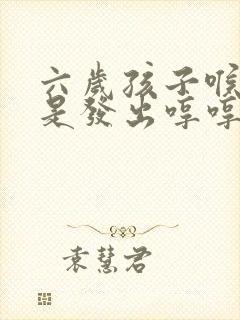 六歲孩子喉
是發出哼哼
袁慧君